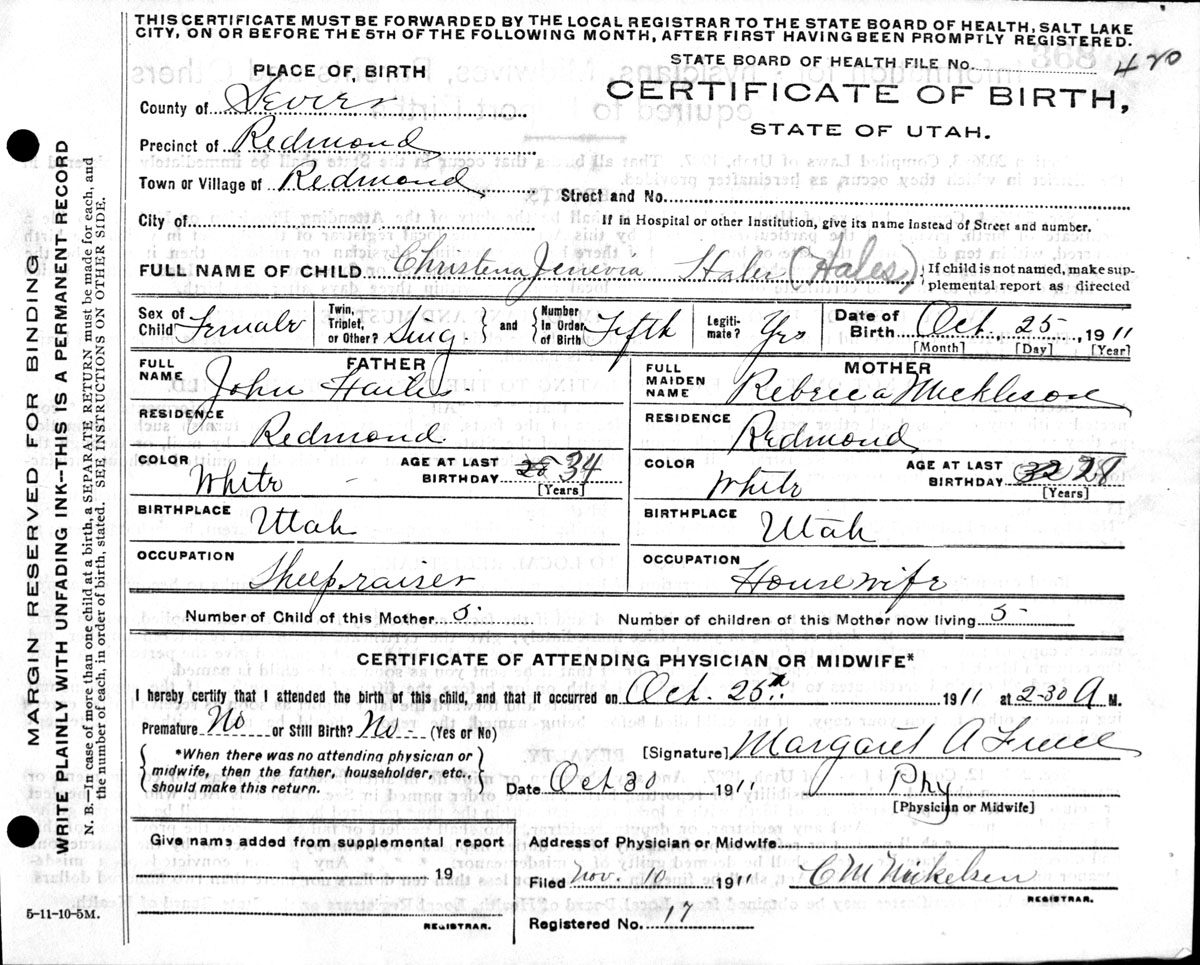 THIS CERTIFICATE MUST BE FORWARDED BY THE LOCAL REGISTRAR TO THE STATE BOARD OF HEALTH, SALT LAKE
CITY, ON OR BEFORE THE 5TH OF THE FOLLOWING MONTH, AFTER FIRST HAVING BEEN PROMPTLY REGISTERED.
STATE BOARD OF HEALTH FILE No. 420
CERTIFICATE OF BIRTH,
STATE OF UTAH.
PLACE OF BIRTH
County of Sevier
Precinct of Redmond
Town or Village of Redmond Street and No.
City of If in Hospital or other Institution, give its name instead of Street and number.
FULL NAME OF CHILD Christena Jenevia Hales (Hales) { If child is not named, make sup-
plemental report as directed
Sex of Child Female Twin, Triplet, or Other? Sing. and Number In Order of Birth Fifth Legiti-mate? Yes Date of Birth Oct. 25, 1911
[Month] [Day] [Year]
FATHER
FULL NAME John Hailes
RESIDENCE Redmond
COLOR White AGE AT LAST BIRTHDAY 28 34
[Years]
BIRTHPLACE Utah
OCCUPATION Sheepraiser
MOTHER
FULL MAIDEN NAME Rebecca Mickleson
RESIDENCE Redmond
COLOR White AGE AT LAST BIRTHDAY 32 28
[Years]
BIRTHPLACE Utah
OCCUPATION Housewife
Number of Child of this Mother 5 Number of children of this Mother now living 5
CERTIFICATE OF ATTENDING PHYSICIAN OR MIDWIFE*
I hereby certify that I attended the birth of this child, and that it occurred on Oct. 25th 1911 at 2-30 A M.
Premature No or Still Birth? No (Yes or No)
*When there was no attending physician or
midwife, then the father, householder, etc.
should make this return.
[Signature] Margaret A
Date Oct 30 1911 Phy
[Physician or Midwife]
Give name added from supplemental report
19
REGISTRAR.
Address of Physician or Midwife
Filed Nov. 10 1911 C M Mickelsen
REGISTRAR.
Registered No. 17
5-11-10-5M.
MARGIN RESERVED FOR BINDING
WRITE PLAINLY WITH UNFADING INK—THIS IS A PERMANENT RECORD
N. B.—In case of more than one child at a birth, a SEPARATE RETURN must be made for each, and
the number of each, in order of birth, stated. SEE INSTRUCTIONS ON OTHER SIDE.